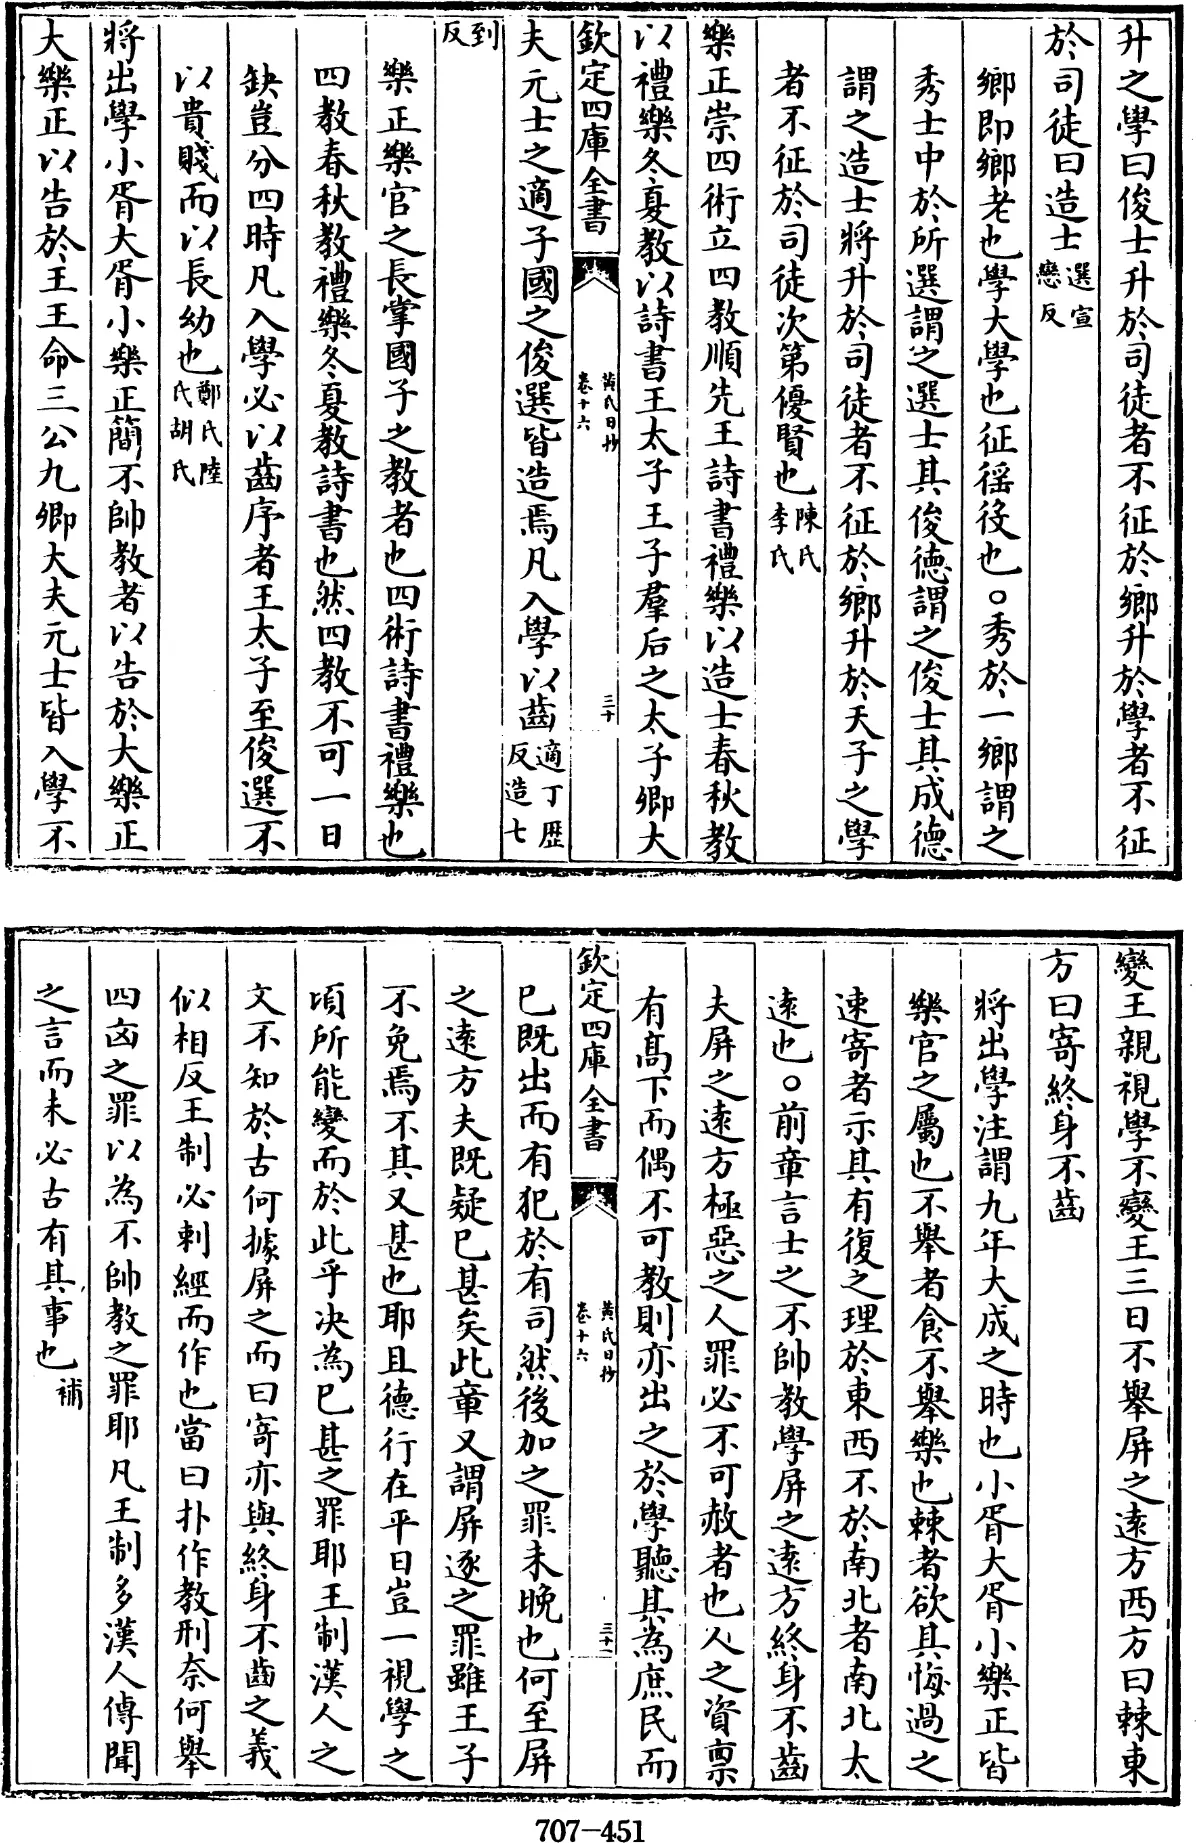 升之學曰俊士升於司徒者不征於鄉升於學者不征
於司徒曰造士選宣戀反
鄉即鄉老也學大學也征徭役也○秀於一鄉謂之
秀士中於所選謂之選士其俊德謂之俊士其成德
謂之造士將升於司徒者不征於鄉升於天子之學
者不征於司徒次第優賢也陳氏李氏
樂正崇四術立四教順先王詩書禮樂以造士春秋教
以禮樂冬夏教以詩書王太子王子羣后之太子卿大
欽定四庫全書 黃氏日抄卷十六 三十
夫元士之適子國之俊選皆造焉凡入學以齒適丁歷反造七
到反
樂正樂官之長掌國子之教者也四術詩書禮樂也
四教春秋教禮樂冬夏教詩書也然四教不可一日
缺豈分四時凡入學必以齒序者王太子至俊選不
以貴賤而以長幼也鄭氏陸氏胡氏
將出學小胥大胥小樂正簡不帥教者以告於大樂正
大樂正以告於王王命三公九卿大夫元士皆入學不
變王親視學不變王三日不舉屏之逺方西方曰棘東
方曰寄終身不齒
將出學注謂九年大成之時也小胥大胥小樂正皆
樂官之屬也不舉者食不舉樂也棘者欲其悔過之
速寄者示其有復之理於東西不於南北者南北太
逺也○前章言士之不帥教學屏之逺方終身不齒
夫屏之逺方極惡之人罪必不可赦者也人之資禀
有髙下而偶不可教則亦出之於學聽其為庶民而
欽定四庫全書 黃氏日抄卷十六 三十一
巳既出而有犯於有司然後加之罪未晚也何至屏
之逺方夫既疑巳甚矣此章又謂屏逐之罪雖王子
不免焉不其又甚也耶且德行在平日豈一視學之
頃所能變而於此乎决為巳甚之罪耶王制漢人之
文不知於古何據屏之而曰寄亦與終身不齒之義
似相反王制必刺經而作也當曰扑作教刑奈何舉
四凶之罪以為不帥教之罪耶凡王制多漢人傳聞
之言而未必古有其事也補
707-451